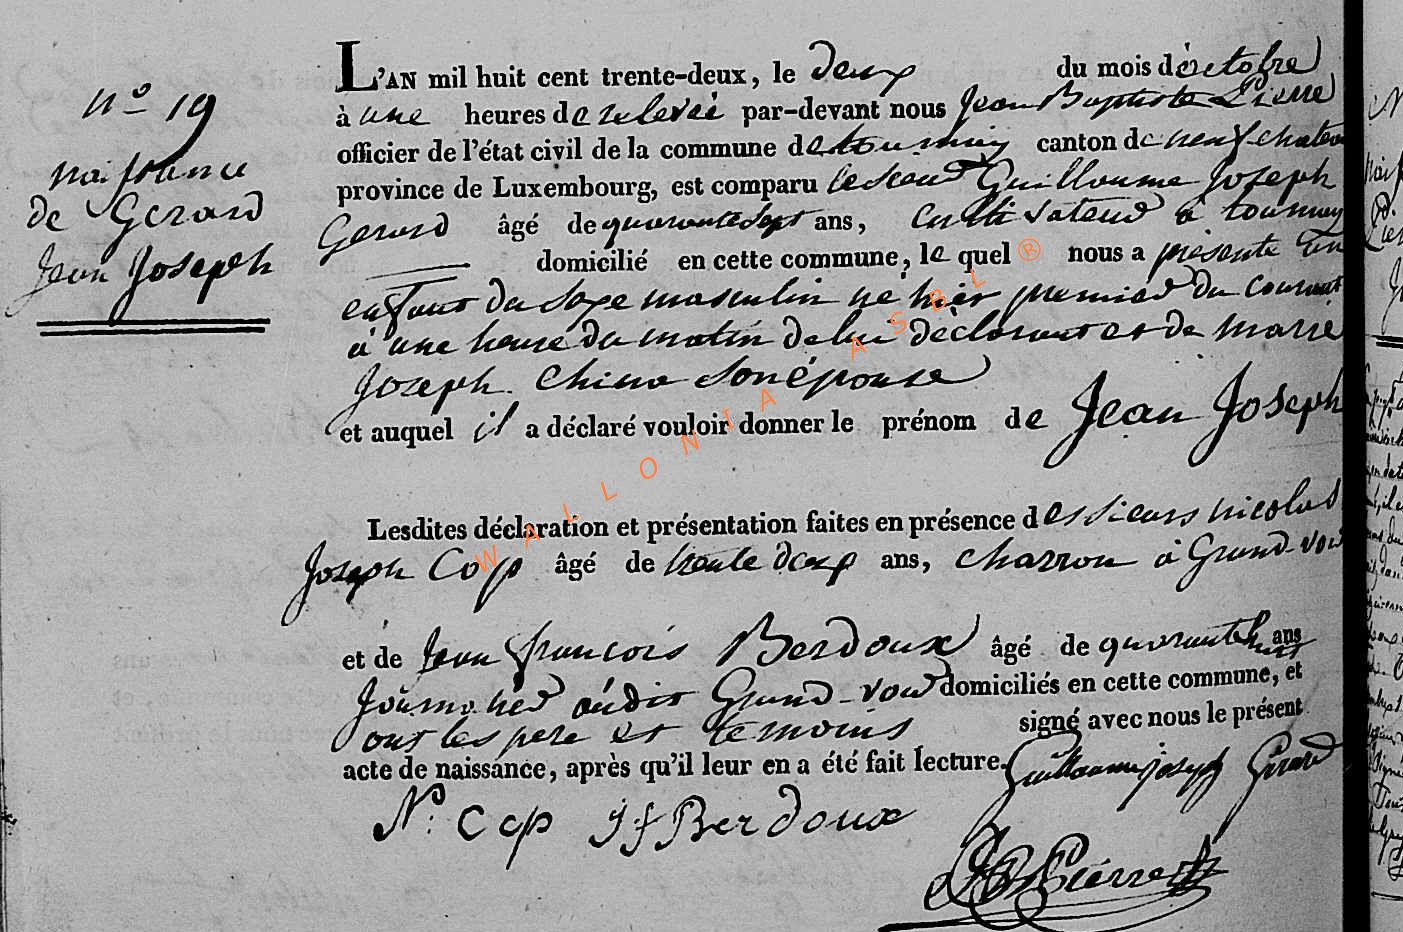 N.º 19
naissance
de Gerard
Jean Joseph
L'AN mil huit cent trente-deux, le deux du mois d'octobre
à une heures de relevée par-devant nous Jean Baptiste Pierre
officier de l'état civil de la commune de tournay canton de neufchateau
province de Luxembourg, est comparu le sieur Guillaume Joseph
Gerard âgé de quarante sept ans, Cultivateur à tournay
domicilié en cette commune, le quel nous a présenté un
enfant du sexe masculin né hier premier du courant
à une heure du matin de lui déclarant et de marie
Joseph China son épouse
et auquel il a déclaré vouloir donner le prénom de Jean Joseph
Lesdites déclaration et présentation faites en présence des sieurs nicolas
Joseph Cop âgé de trente deux ans, charron à Grand-voir
et de Jean françois Berdoux âgé de quarante ans
Journalier audit Grand-voir domiciliés en cette commune, et
ont les pere et temoins signé avec nous le présent
acte de naissance, après qu'il leur en a été fait lecture. Guillaume joseph Gerard
N. Cop J f Berdoux
JB Pierre
WALLONIA ASBL ®